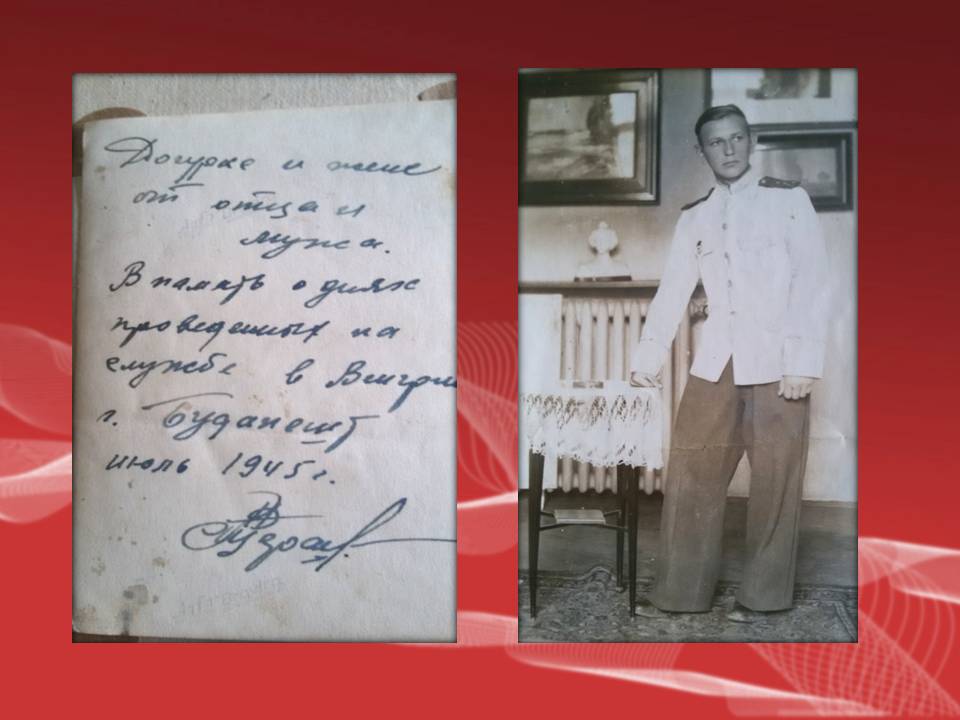 Дочурке и жене
от отца и
мужа.
В память о днях
проведенных на
службе в Венгрии
г. Будапешт
июль 1945 г.